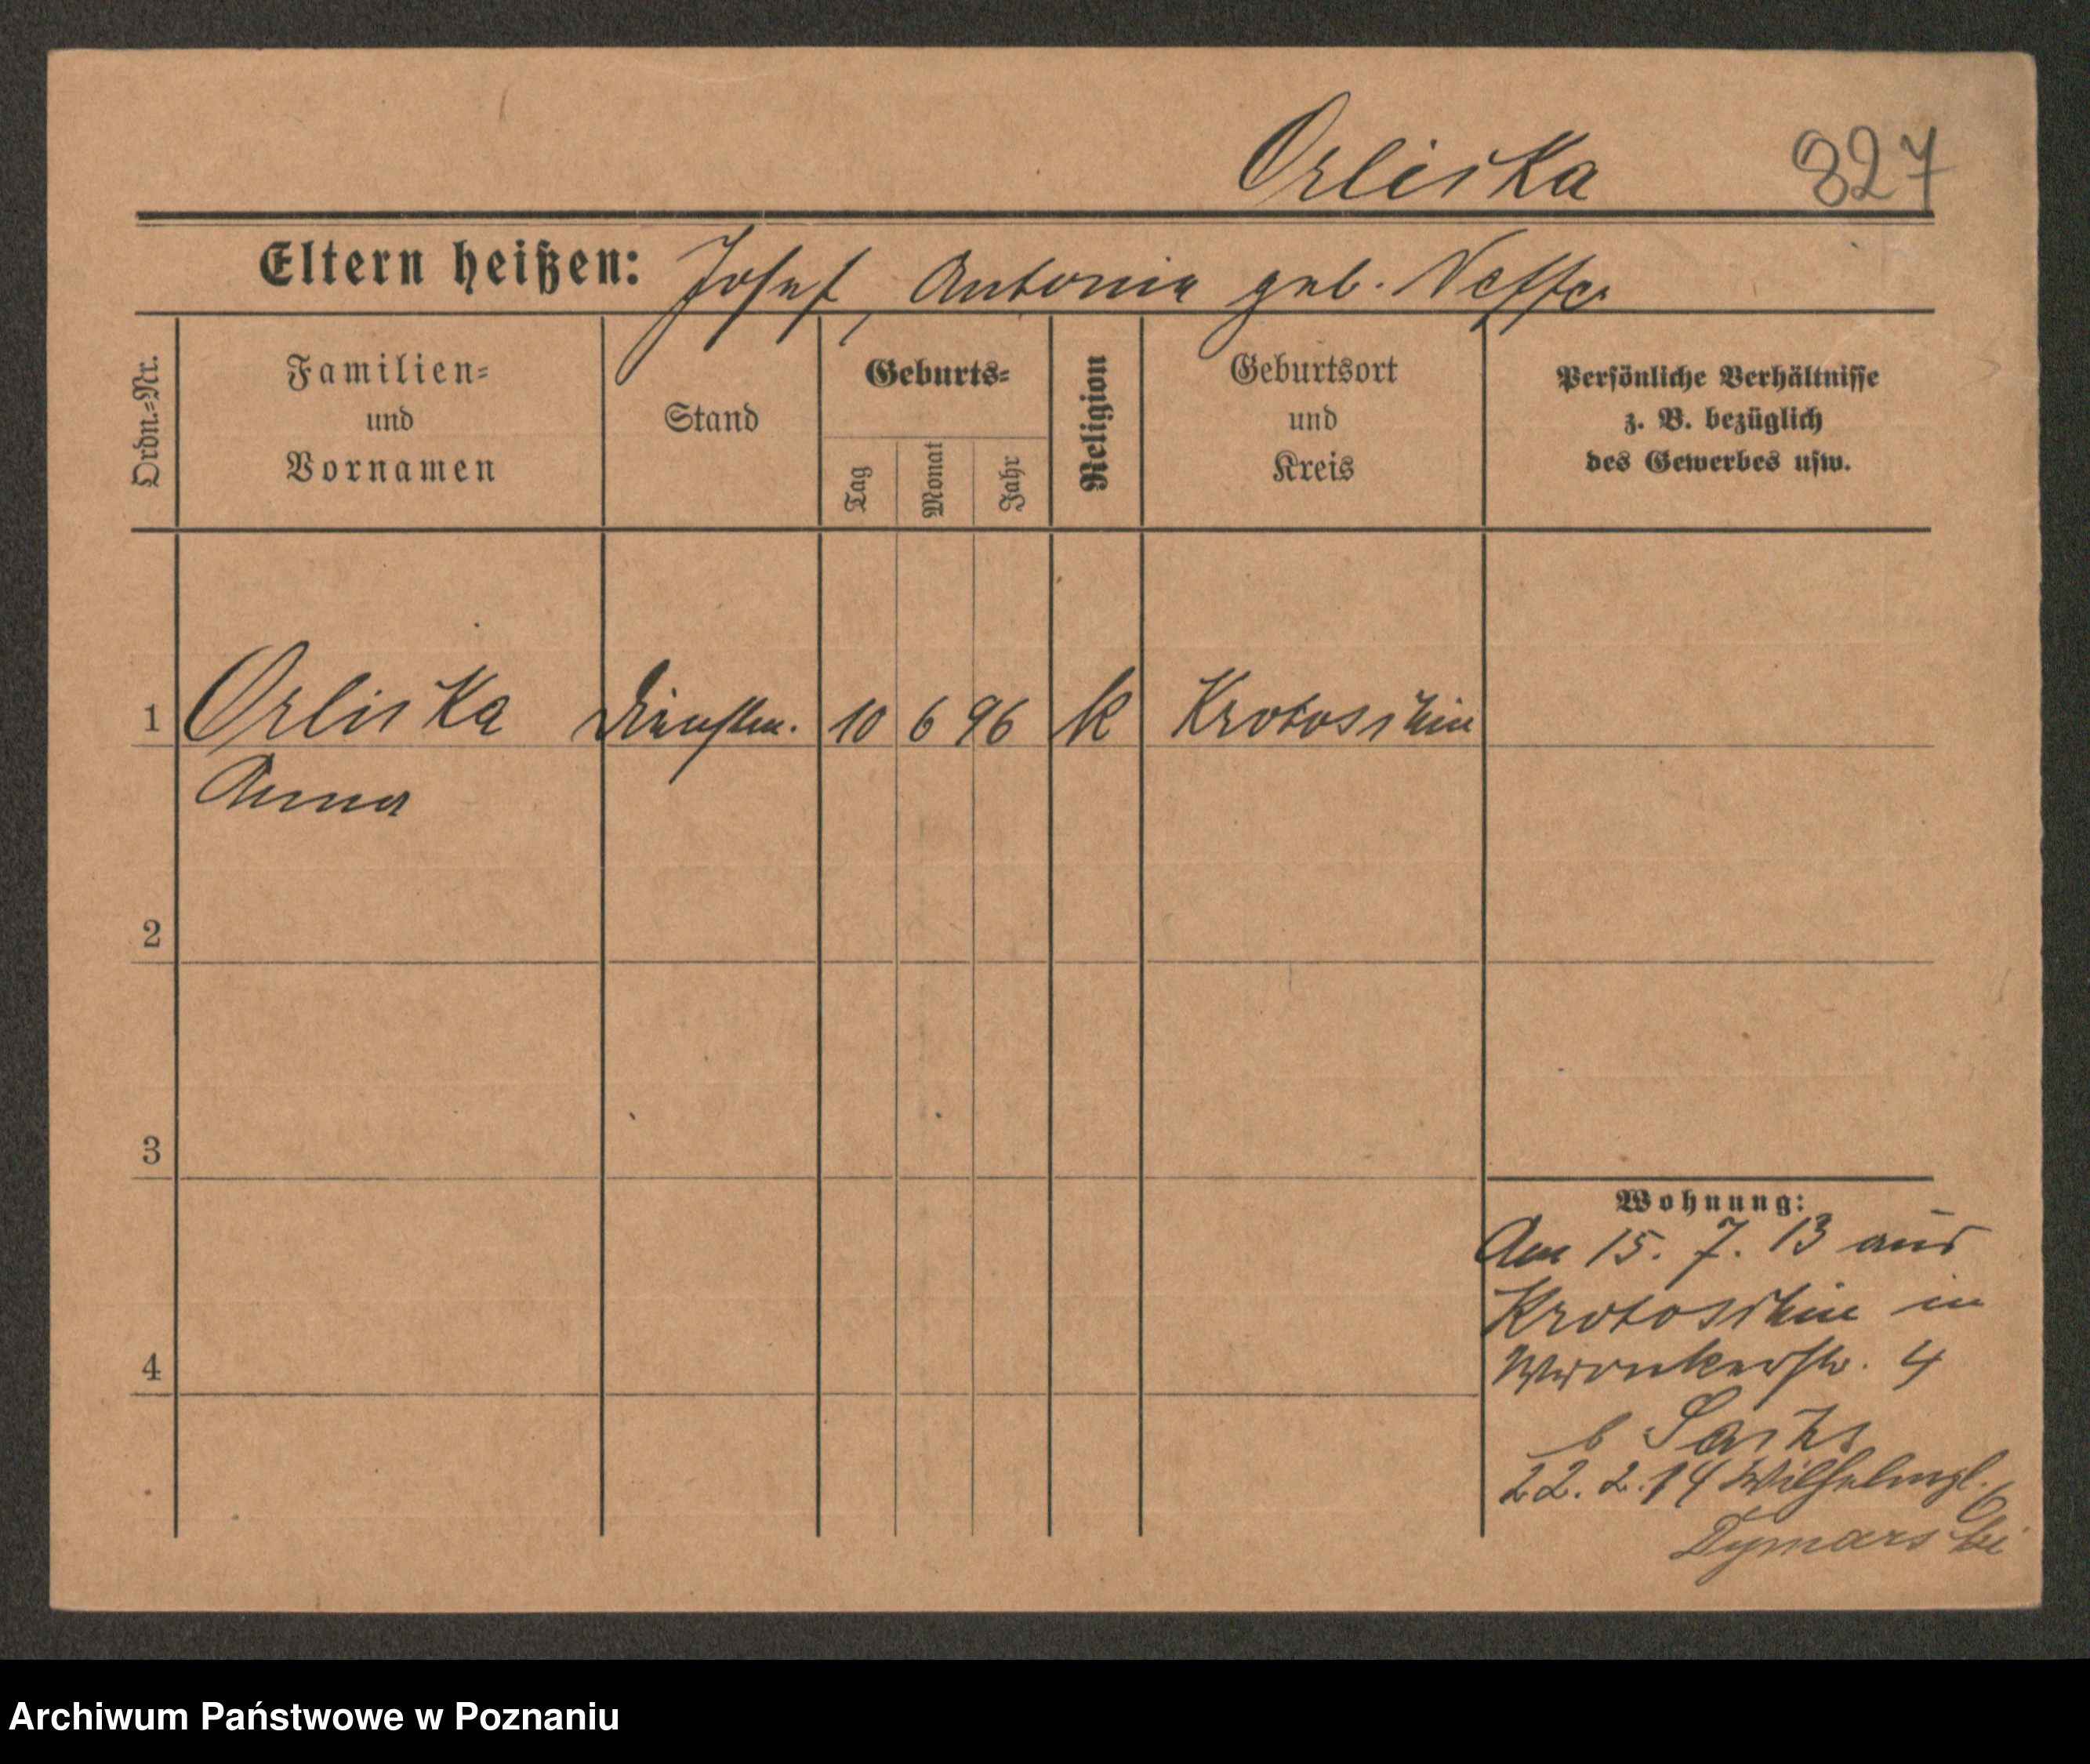 Orliska 827
Eltern heißen: Josef, Antonia geb. Neffe
Ordn.=Nr.
Familien=
und
Vornamen
Stand
Geburts=
Tag
Monat
Jahr
Religion
Geburtsort
und
Kreis
Persönliche Verhältnisse
z. B. bezüglich
des Gewerbes usw.
1 Orliska Dienstm. 10 6 96 k Krotoschin
Anna
2
3
4
Wohnung:
Am 15. 7. 13 aus
Krotoschin in
Wronkerstr. 4
b Sachs
22. 2. 14 Wilhelmpl. 6
Dymarski
Archiwum Państwowe w Poznaniu